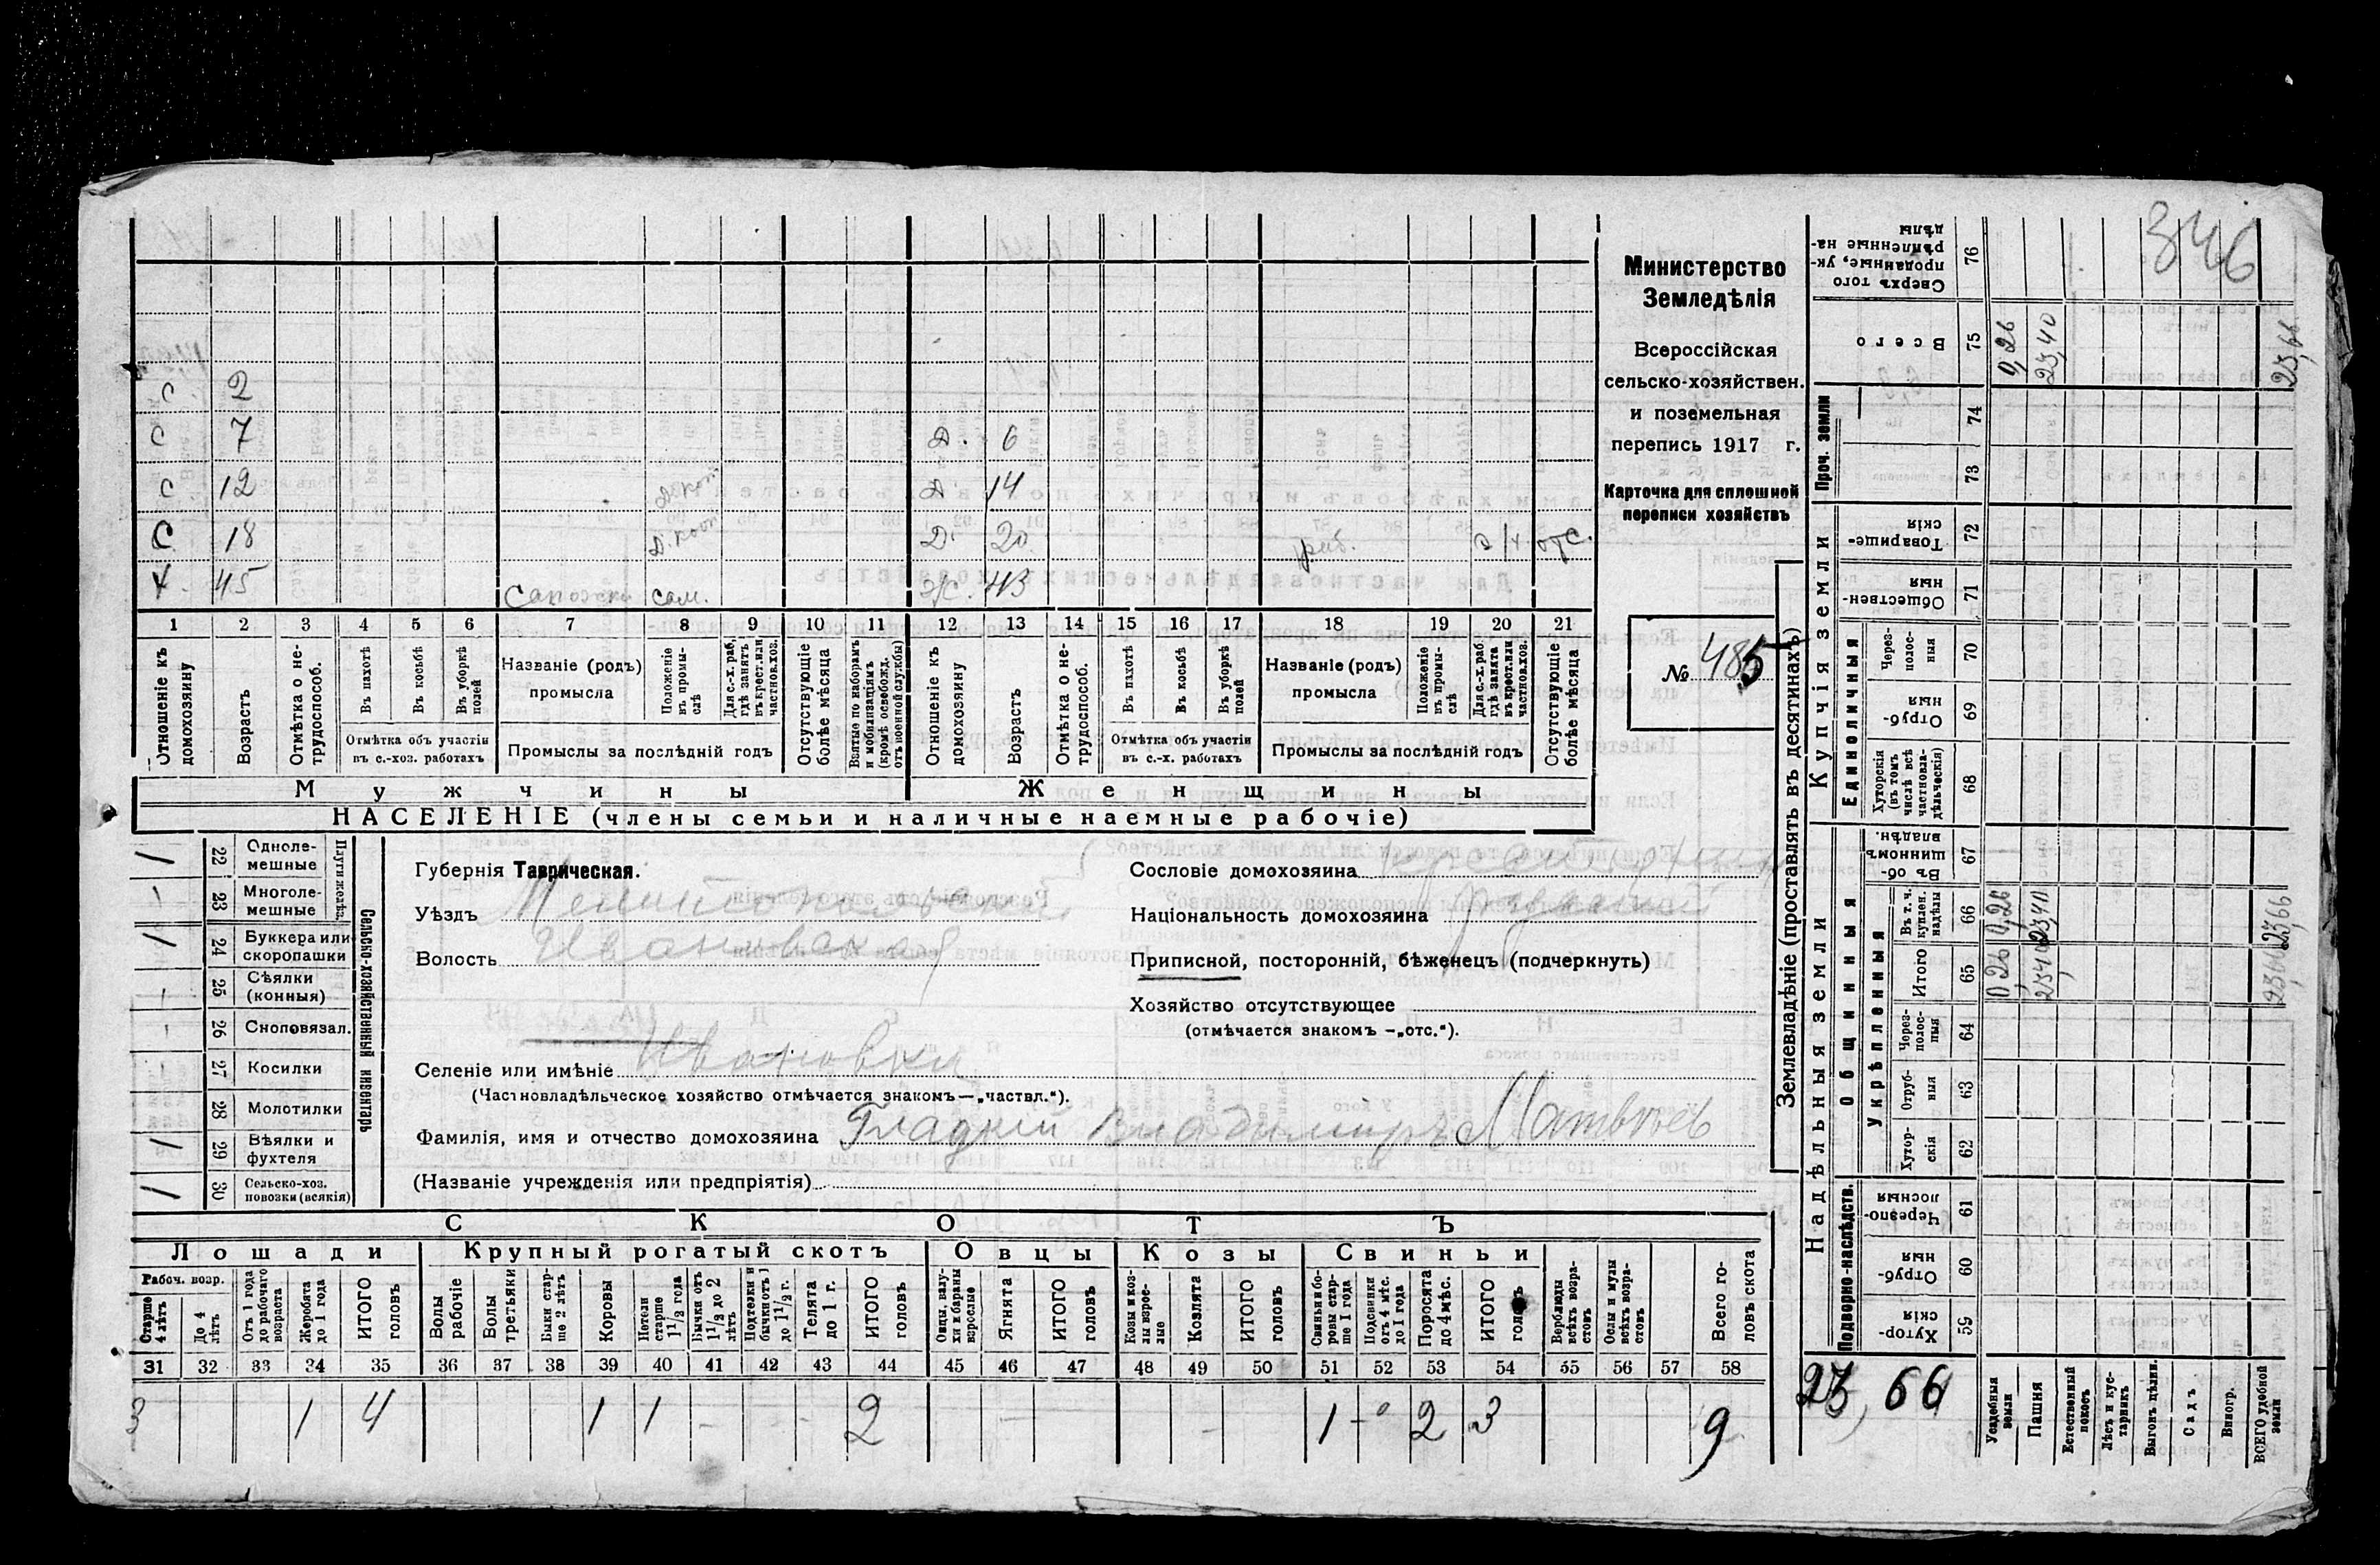 346
Министерство
Земледѣлія
Всероссійская
сельско-хозяйствен.
и поземельная
перепись 1917 г.
Карточка для сплошной
переписи хозяйствъ
№ 485
С 2
С 7 Д. 6
С 12 Д. 14
С 18 Д. 20 отс.
Х. 45 сам. 43
1 2 3 4 5 6 7 8 9 10 11 12 13 14 15 16 17 18 19 20 21
Отношеніе къ домохозяину
Возрастъ
Отмѣтка о нетрудоспособ.
Въ пахотѣ
Въ косьбѣ
Въ уборкѣ полей
Отмѣтка объ участіи въ с.-хоз. работахъ
Названіе (родъ) промысла
Положеніе въ промыслѣ
Для с.-х. раб. гдѣ занятъ въ крест. или частнов. хоз.
Промыслы за послѣдній годъ
Отсутствующіе болѣе мѣсяца
Взятые по наборамъ и мобилизаціямъ (кромѣ освобожд. отъ военной службы)
Отношеніе къ домохозяину
Возрастъ
Отмѣтка о нетрудоспособ.
Въ пахотѣ
Въ косьбѣ
Въ уборкѣ полей
Отмѣтка объ участіи въ с.-х. работахъ
Названіе (родъ) промысла
Положеніе въ промыслѣ
Для с.-х. раб. гдѣ занята въ крест. или частнов. хоз.
Промыслы за послѣдній годъ
Отсутствующіе болѣе мѣсяца
Мужчины Женщины
НАСЕЛЕНІЕ (члены семьи и наличные наемные рабочіе)
Сельско-хозяйственный инвентарь
1 22 Однолемешные
- 23 Многолемешные
1 24 Буккера или скоропашки
- 25 Сѣялки (конныя)
- 26 Сноповязал.
- 27 Косилки
- 28 Молотилки
1 29 Вѣялки и фухтеля
1 30 Сельско-хоз. повозки (всякія)
Губернія Таврическая.
Уѣздъ Мелитопольскій
Волость Ивановская
Селеніе или имѣніе Ивановка
(Частновладѣльческое хозяйство отмѣчается знакомъ—„частвл.“).
Фамилія, имя и отчество домохозяина Гладкій Владимиръ Матвѣевъ
(Названіе учрежденія или предпріятія)
Сословіе домохозяина
Національность домохозяина
Приписной, посторонній, бѣженецъ (подчеркнуть)
Хозяйство отсутствующее
(отмѣчается знакомъ —„отс.“).
СКОТЪ
Лошади Крупный рогатый скотъ Овцы Козы Свиньи
Рабоч. возр.
Старше 4 лѣтъ
До 4 лѣтъ
Отъ 1 года до рабочаго возраста
Жеребята до 1 года
ИТОГО головъ
Волы рабочіе
Волы третьяки
Быки старше 2 лѣтъ
Коровы
Нетели старше 1½ года
Бычки отъ 1½ до 2 лѣтъ
Подтелки и бычки отъ 1 до 1½ г.
Телята до 1 г.
ИТОГО головъ
Овцы, валухи и бараны взрослые
Ягнята
ИТОГО головъ
Козы и козлы взрослые
Козлята
ИТОГО головъ
Свиньи и боровы старше 1 года
Подсвинки отъ 4 мѣс. до 1 года
Поросята до 4 мѣс.
ИТОГО головъ
Верблюды всѣхъ возрастовъ
Ослы и мулы всѣхъ возрастовъ
Всего головъ скота
31 32 33 34 35 36 37 38 39 40 41 42 43 44 45 46 47 48 49 50 51 52 53 54 55 56 57 58
3 1 4 1 1 - - 2 - - 1 - 2 3 9
Землевладѣніе (проставлять въ десятинахъ)
Сверхъ того проданные, укрѣпленные надѣлы 76
Всего 75 0,26 23,40 23,66
Проч. земли
74
73
Купчія земли
Товарищескія 72
Общественныя 71
Единоличныя
Черезполосныя 70
Отрубныя 69
Хуторскія (въ томъ числѣ всѣ частновладѣльческія) 68
Надѣльныя земли
Общинныя
Въ общинномъ владѣн. 67
Укрѣпленныя
Въ т. ч. куплен. надѣлы 66 0,26 23,40 23,66
Итого 65 0,26 23,40 23,66
Черезполосныя 64
Отрубныя 63
Хуторскія 62
Подворно-наслѣдств.
Черезполосныя 61
Отрубныя 60
Хуторскія 59
23,66
Усадебныя земли
Пашня
Естественный покосъ
Лѣсъ и кустарникъ
Выгонъ цѣлин.
Садъ
Виногр.
ВСЕГО удобной земли